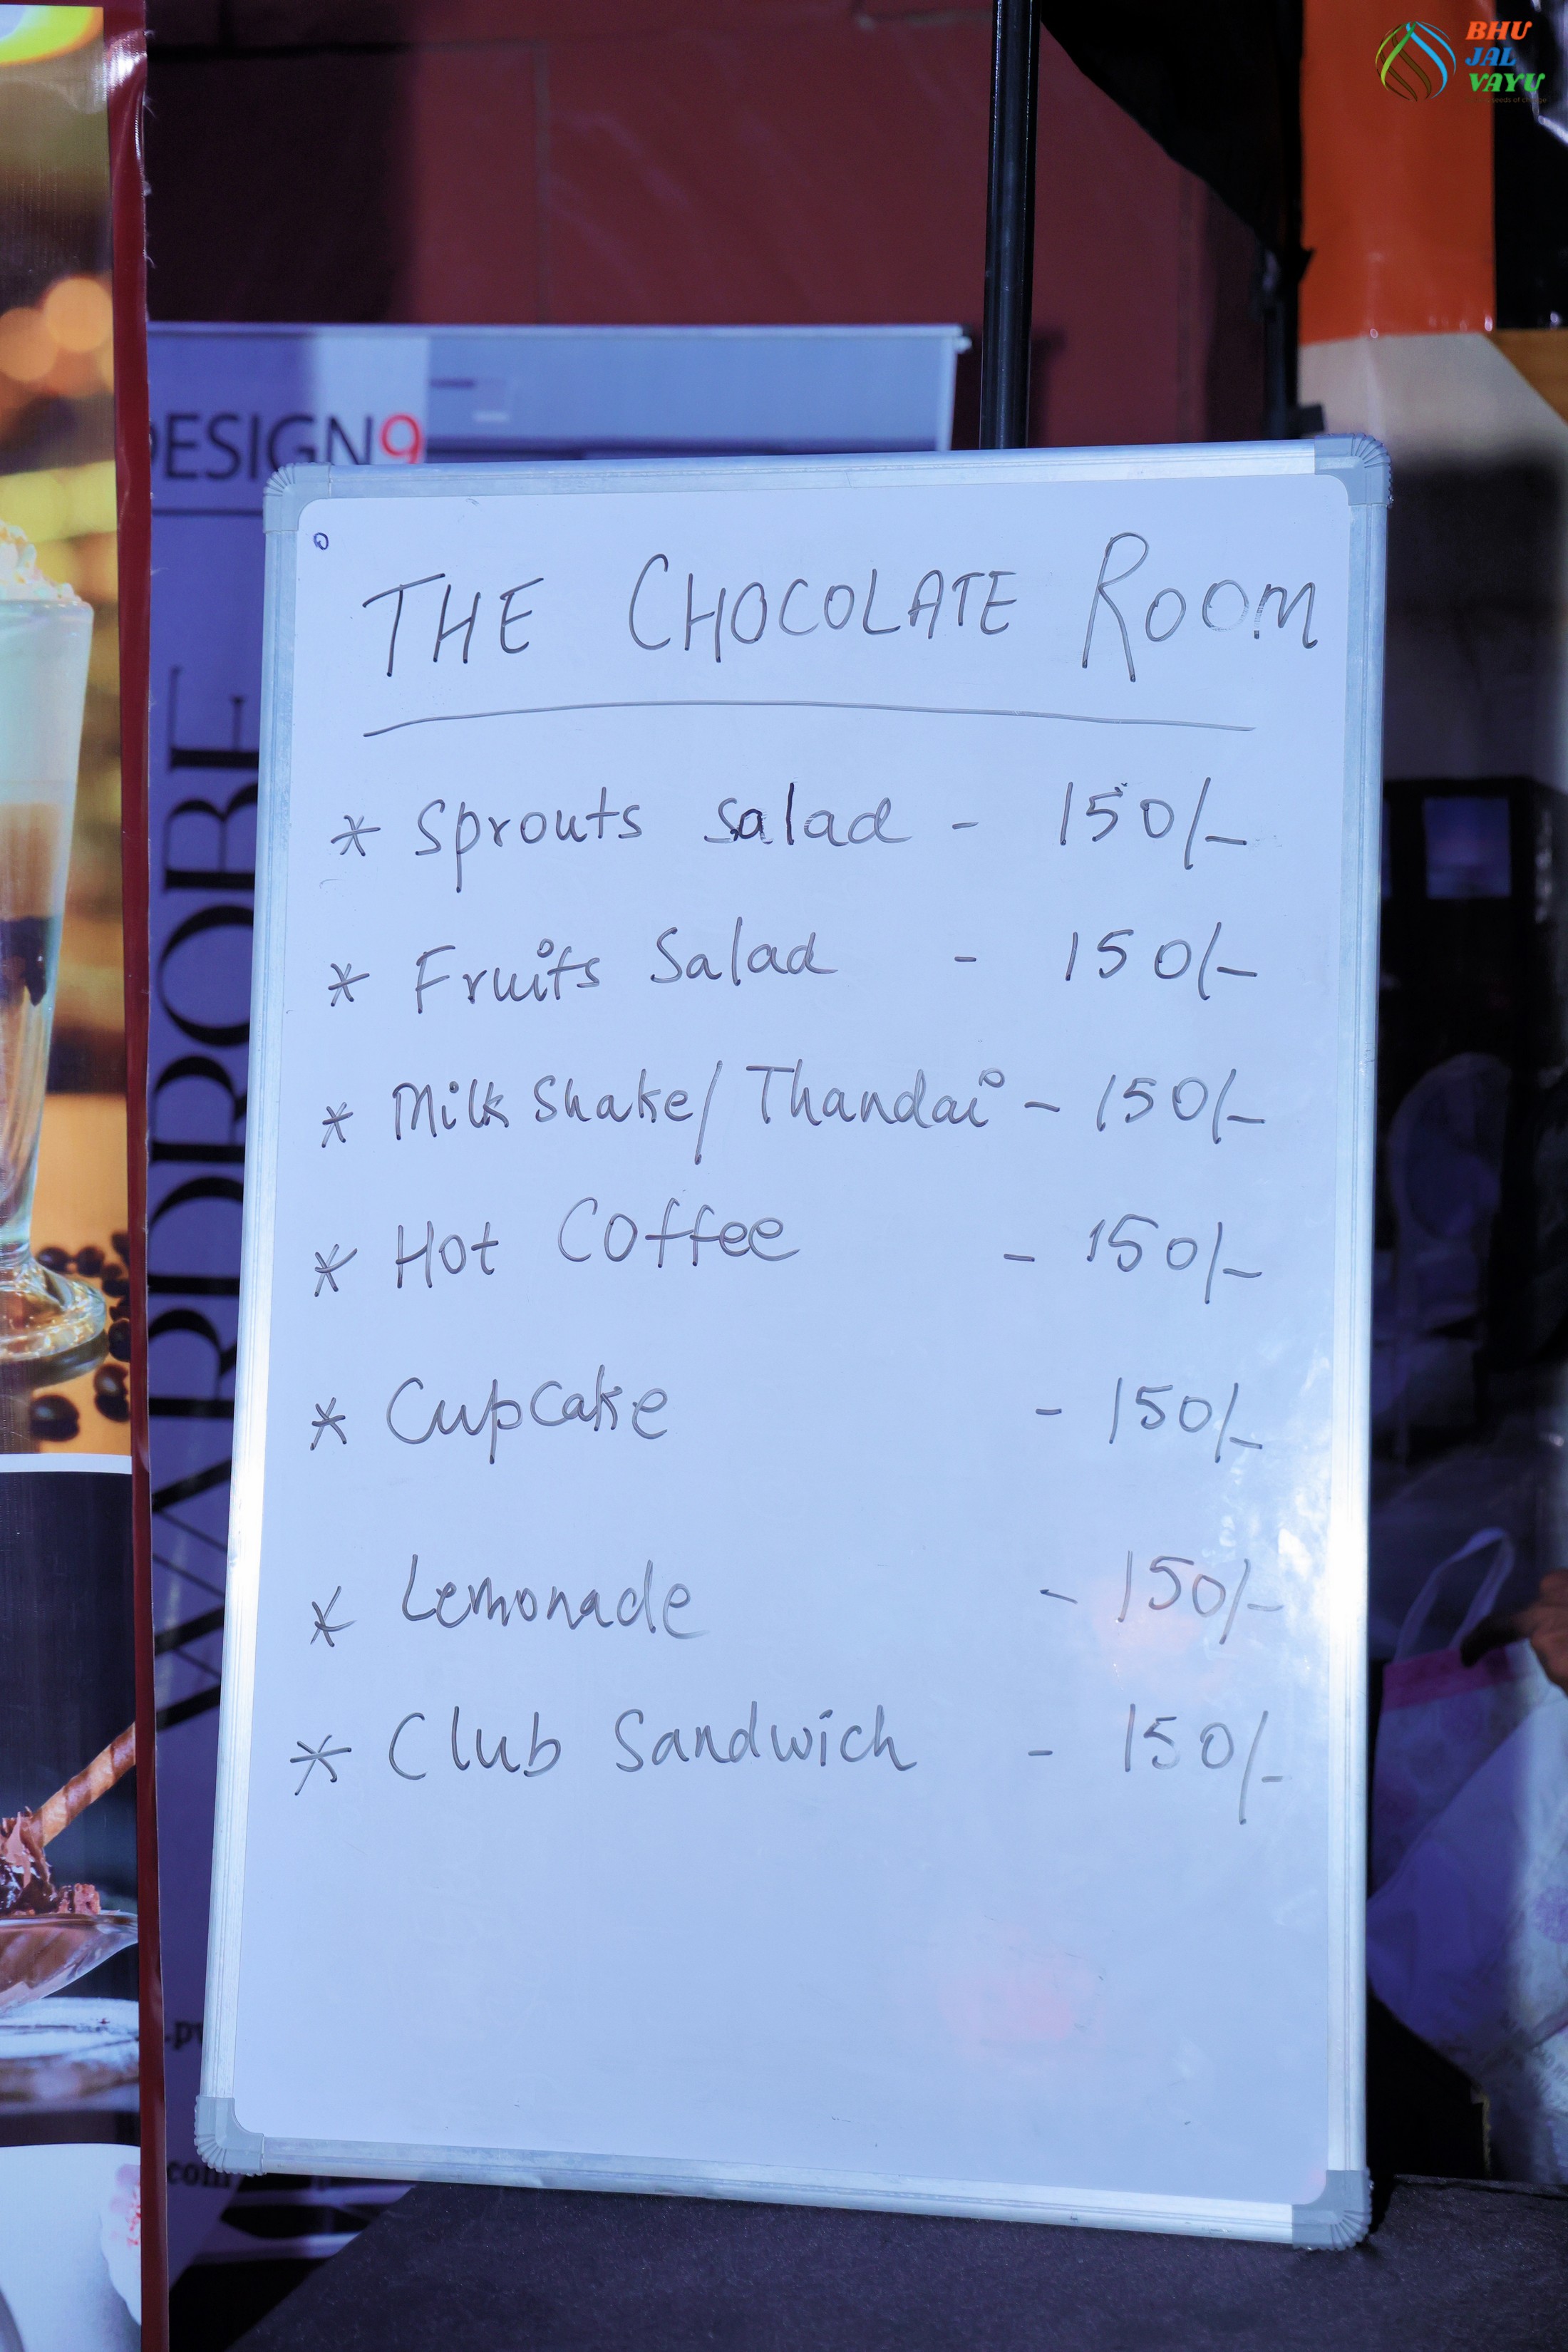 BHU
JAL
VAYU
DESIGN9
WARDROBE
THE CHOCOLATE ROOM
* Sprouts Salad - 150/-
* Fruits Salad - 150/-
* Milk Shake/ Thandai - 150/-
* Hot Coffee - 150/-
* Cupcake - 150/-
* Lemonade - 150/-
* Club Sandwich - 150/-